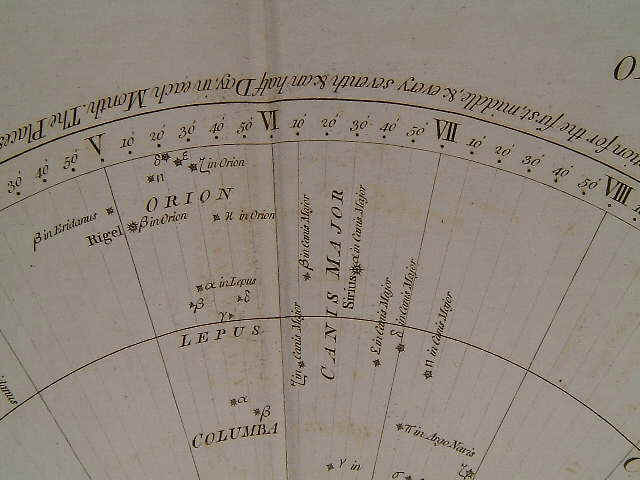 O
tion for the first, middle, & every seventh & an half Day, in each Month. The Places
30 40 50 V 10 20 30 40 50 VI 10 20 30 40 50 VII 10 20 30 40 50 VIII
δ ε ζ in Orion
η
ORION
β in Eridanus
Rigel β in Orion
κ in Orion
β in Canis Major
CANIS MAJOR
Sirius α in Canis Major
α in Lepus
β
γ
LEPUS
ζ in Canis Major
ε in Canis Major
δ in Canis Major
η in Canis Major
α
β
COLUMBA
π in Argo Navis
γ in
σ
ζ